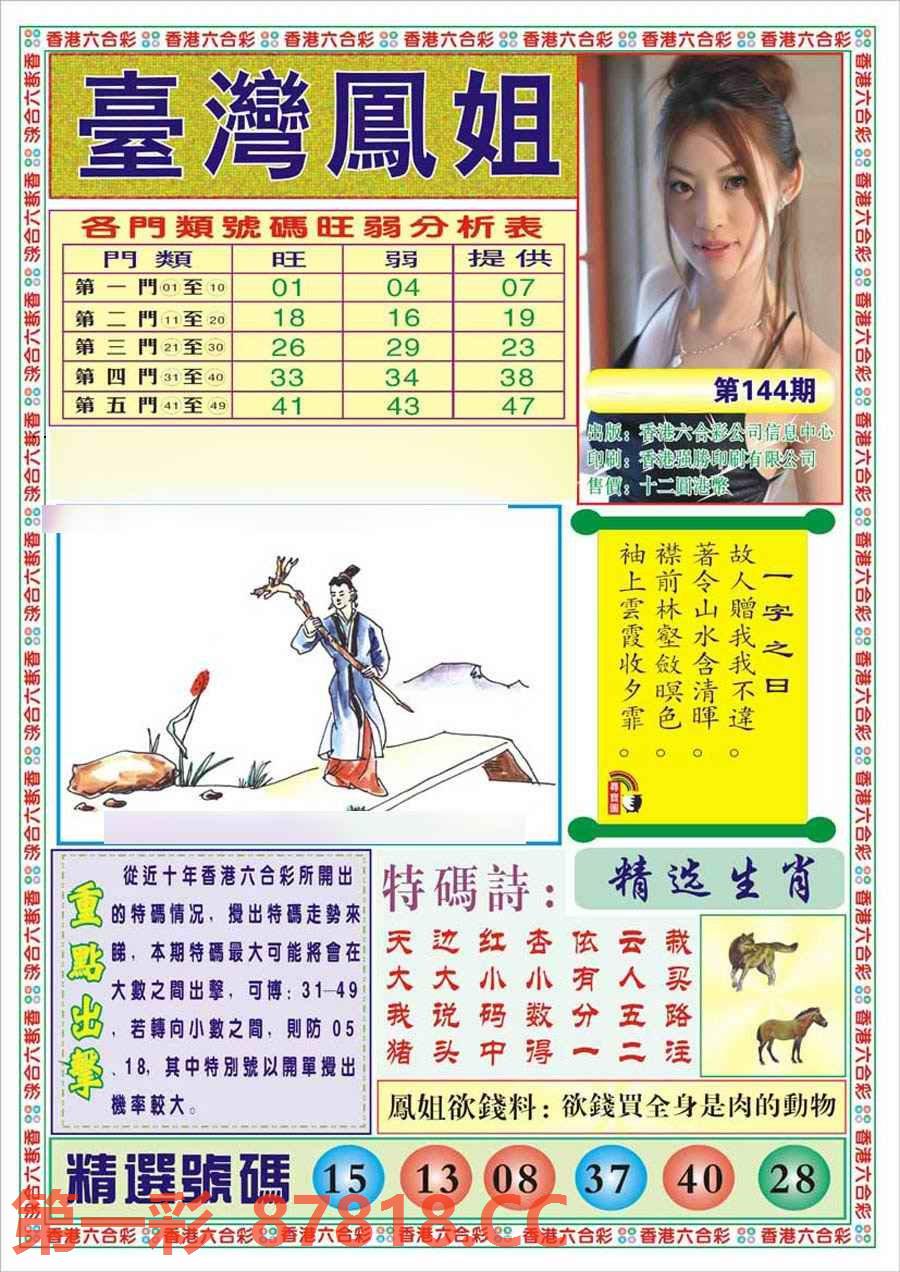 香港六合彩 香港六合彩 香港六合彩 香港六合彩 香港六合彩 香港六合彩 香港六合彩
臺灣鳳姐
各門類號碼旺弱分析表
門類 旺 弱 提供
第一門01至10 01 04 07
第二門11至20 18 16 19
第三門21至30 26 29 23
第四門31至40 33 34 38
第五門41至49 41 43 47
第144期
出版：香港六合彩公司信息中心
印刷：香港强勝印刷有限公司
售價：十二圓港幣
一字之曰
故人贈我我不違。
著令山水含清暉。
襟前林壑斂暝色。
袖上雲霞收夕霏。
尋寶圖
重點出擊
從近十年香港六合彩所開出
的特碼情况，攪出特碼走勢來
睇，本期特碼最大可能將會在
大數之間出擊，可博：31—49
，若轉向小數之間，則防 05
、18，其中特別號以開單攪出
機率較大。
特碼詩：
天边红杏依云栽
大大小小有人买
我说码数分五路
猪头中得一二注
精选生肖
鳳姐欲錢料：欲錢買全身是肉的動物
精選號碼 15 13 08 37 40 28
第一彩 87818.CC
香港六合彩 香港六合彩 香港六合彩 香港六合彩 香港六合彩 香港六合彩 香港六合彩